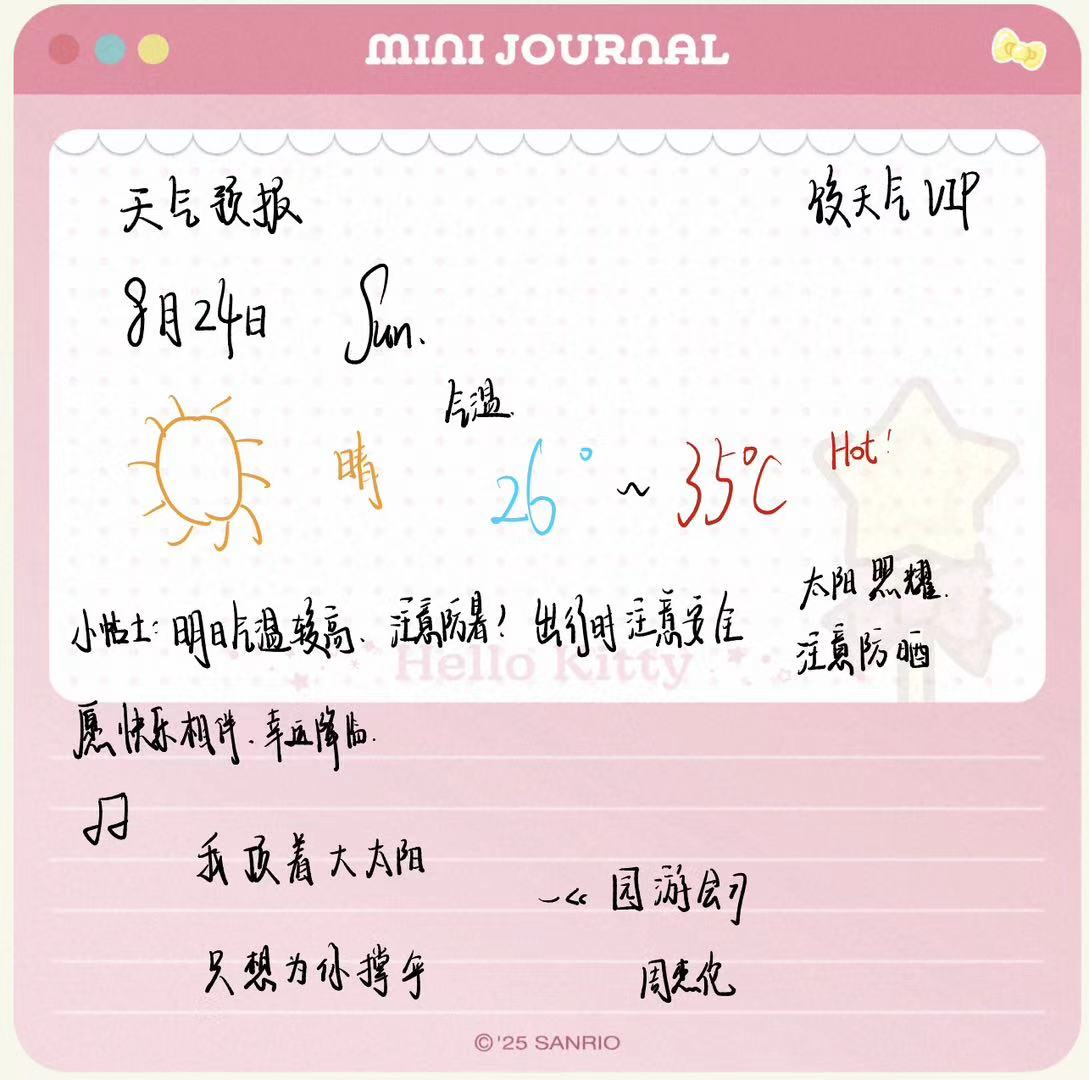 MINI JOURNAL
天气预报
饺天气VIP
8月24日 Sun.
气温
晴 26° ~ 35℃ Hot!
太阳照耀.
小帖士: 明日气温较高、注意防暑! 出行时注意安全
注意防晒
Hello Kitty
愿快乐相伴.幸运降临.
我顶着大太阳
—《园游会》
只想为你撑伞
周杰伦
©'25 SANRIO